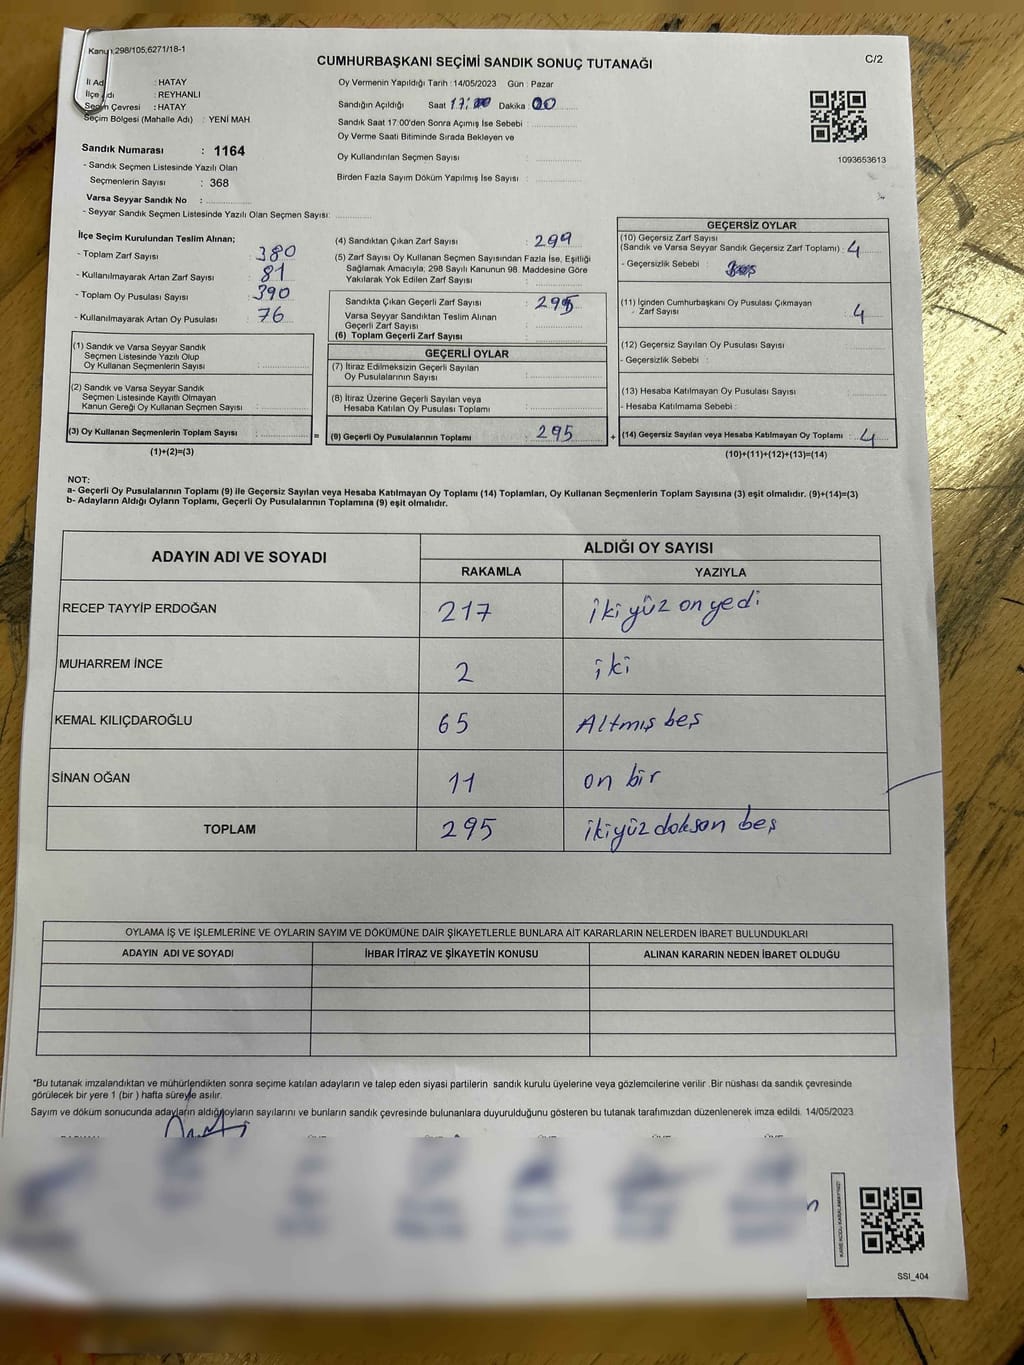 Kanun:298/105,6271/18-1
CUMHURBAŞKANI SEÇİMİ SANDIK SONUÇ TUTANAĞI
C/2
İl Adı : HATAY
İlçe Adı : REYHANLI
Seçim Çevresi : HATAY
Seçim Bölgesi (Mahalle Adı) : YENİ MAH
Sandık Numarası : 1164
- Sandık Seçmen Listesinde Yazılı Olan
Seçmenlerin Sayısı : 368
Varsa Seyyar Sandık No :
- Seyyar Sandık Seçmen Listesinde Yazılı Olan Seçmen Sayısı:
Oy Vermenin Yapıldığı Tarih : 14/05/2023 Gün : Pazar
Sandığın Açıldığı Saat 17:00 Dakika : 00
Sandık Saat 17:00'den Sonra Açımış İse Sebebi :
Oy Verme Saati Bitiminde Sırada Bekleyen ve
Oy Kullandırılan Seçmen Sayısı :
Birden Fazla Sayım Döküm Yapılmış İse Sayısı :
1093653613
İlçe Seçim Kurulundan Teslim Alınan;
- Toplam Zarf Sayısı : 380
- Kullanılmayarak Artan Zarf Sayısı : 81
- Toplam Oy Pusulası Sayısı : 390
- Kullanılmayarak Artan Oy Pusulası : 76
(1) Sandık ve Varsa Seyyar Sandık
Seçmen Listesinde Yazılı Olup
Oy Kullanan Seçmenlerin Sayısı :
(2) Sandık ve Varsa Seyyar Sandık
Seçmen Listesinde Kayıtlı Olmayan
Kanun Gereği Oy Kullanan Seçmen Sayısı :
(3) Oy Kullanan Seçmenlerin Toplam Sayısı : =
(1)+(2)=(3)
(4) Sandıktan Çıkan Zarf Sayısı : 299
(5) Zarf Sayısı Oy Kullanan Seçmen Sayısından Fazla İse, Eşitliği
Sağlamak Amacıyla; 298 Sayılı Kanunun 98. Maddesine Göre
Yakılarak Yok Edilen Zarf Sayısı :
Sandıkta Çıkan Geçerli Zarf Sayısı : 295
Varsa Seyyar Sandıktan Teslim Alınan
Geçerli Zarf Sayısı :
(6) Toplam Geçerli Zarf Sayısı :
GEÇERLİ OYLAR
(7) İtiraz Edilmeksizin Geçerli Sayılan
Oy Pusulalarının Sayısı :
(8) İtiraz Üzerine Geçerli Sayılan veya
Hesaba Katılan Oy Pusulası Toplamı :
(9) Geçerli Oy Pusulalarının Toplamı : 295 +
GEÇERSİZ OYLAR
(10) Geçersiz Zarf Sayısı
(Sandık ve Varsa Seyyar Sandık Geçersiz Zarf Toplamı) : 4
- Geçersizlik Sebebi :
(11) İçinden Cumhurbaşkanı Oy Pusulası Çıkmayan
- Zarf Sayısı : 4
(12) Geçersiz Sayılan Oy Pusulası Sayısı :
- Geçersizlik Sebebi :
(13) Hesaba Katılmayan Oy Pusulası Sayısı :
- Hesaba Katılmama Sebebi :
(14) Geçersiz Sayılan veya Hesaba Katılmayan Oy Toplamı : 4
(10)+(11)+(12)+(13)=(14)
NOT:
a- Geçerli Oy Pusulalarının Toplamı (9) ile Geçersiz Sayılan veya Hesaba Katılmayan Oy Toplamı (14) Toplamları, Oy Kullanan Seçmenlerin Toplam Sayısına (3) eşit olmalıdır. (9)+(14)=(3)
b- Adayların Aldığı Oyların Toplamı, Geçerli Oy Pusulalarının Toplamına (9) eşit olmalıdır.
ADAYIN ADI VE SOYADI
ALDIĞI OY SAYISI
RAKAMLA YAZIYLA
RECEP TAYYİP ERDOĞAN 217 ikiyüz onyedi
MUHARREM İNCE 2 iki
KEMAL KILIÇDAROĞLU 65 Altmış beş
SİNAN OĞAN 11 on bir
TOPLAM 295 ikiyüz doksan beş
OYLAMA İŞ VE İŞLEMLERİNE VE OYLARIN SAYIM VE DÖKÜMÜNE DAİR ŞİKAYETLERLE BUNLARA AİT KARARLARIN NELERDEN İBARET BULUNDUKLARI
ADAYIN ADI VE SOYADI İHBAR İTİRAZ VE ŞİKAYETİN KONUSU ALINAN KARARIN NEDEN İBARET OLDUĞU
*Bu tutanak imzalandıktan ve mühürlendikten sonra seçime katılan adayların ve talep eden siyasi partilerin sandık kurulu üyelerine veya gözlemcilerine verilir .Bir nüshası da sandık çevresinde
görülecek bir yere 1 (bir ) hafta süreyle asılır.
Sayım ve döküm sonucunda adayların aldığı oyların sayılarını ve bunların sandık çevresinde bulunanlara duyurulduğunu gösteren bu tutanak tarafımızdan düzenlenerek imza edildi. 14/05/2023
SSI_404